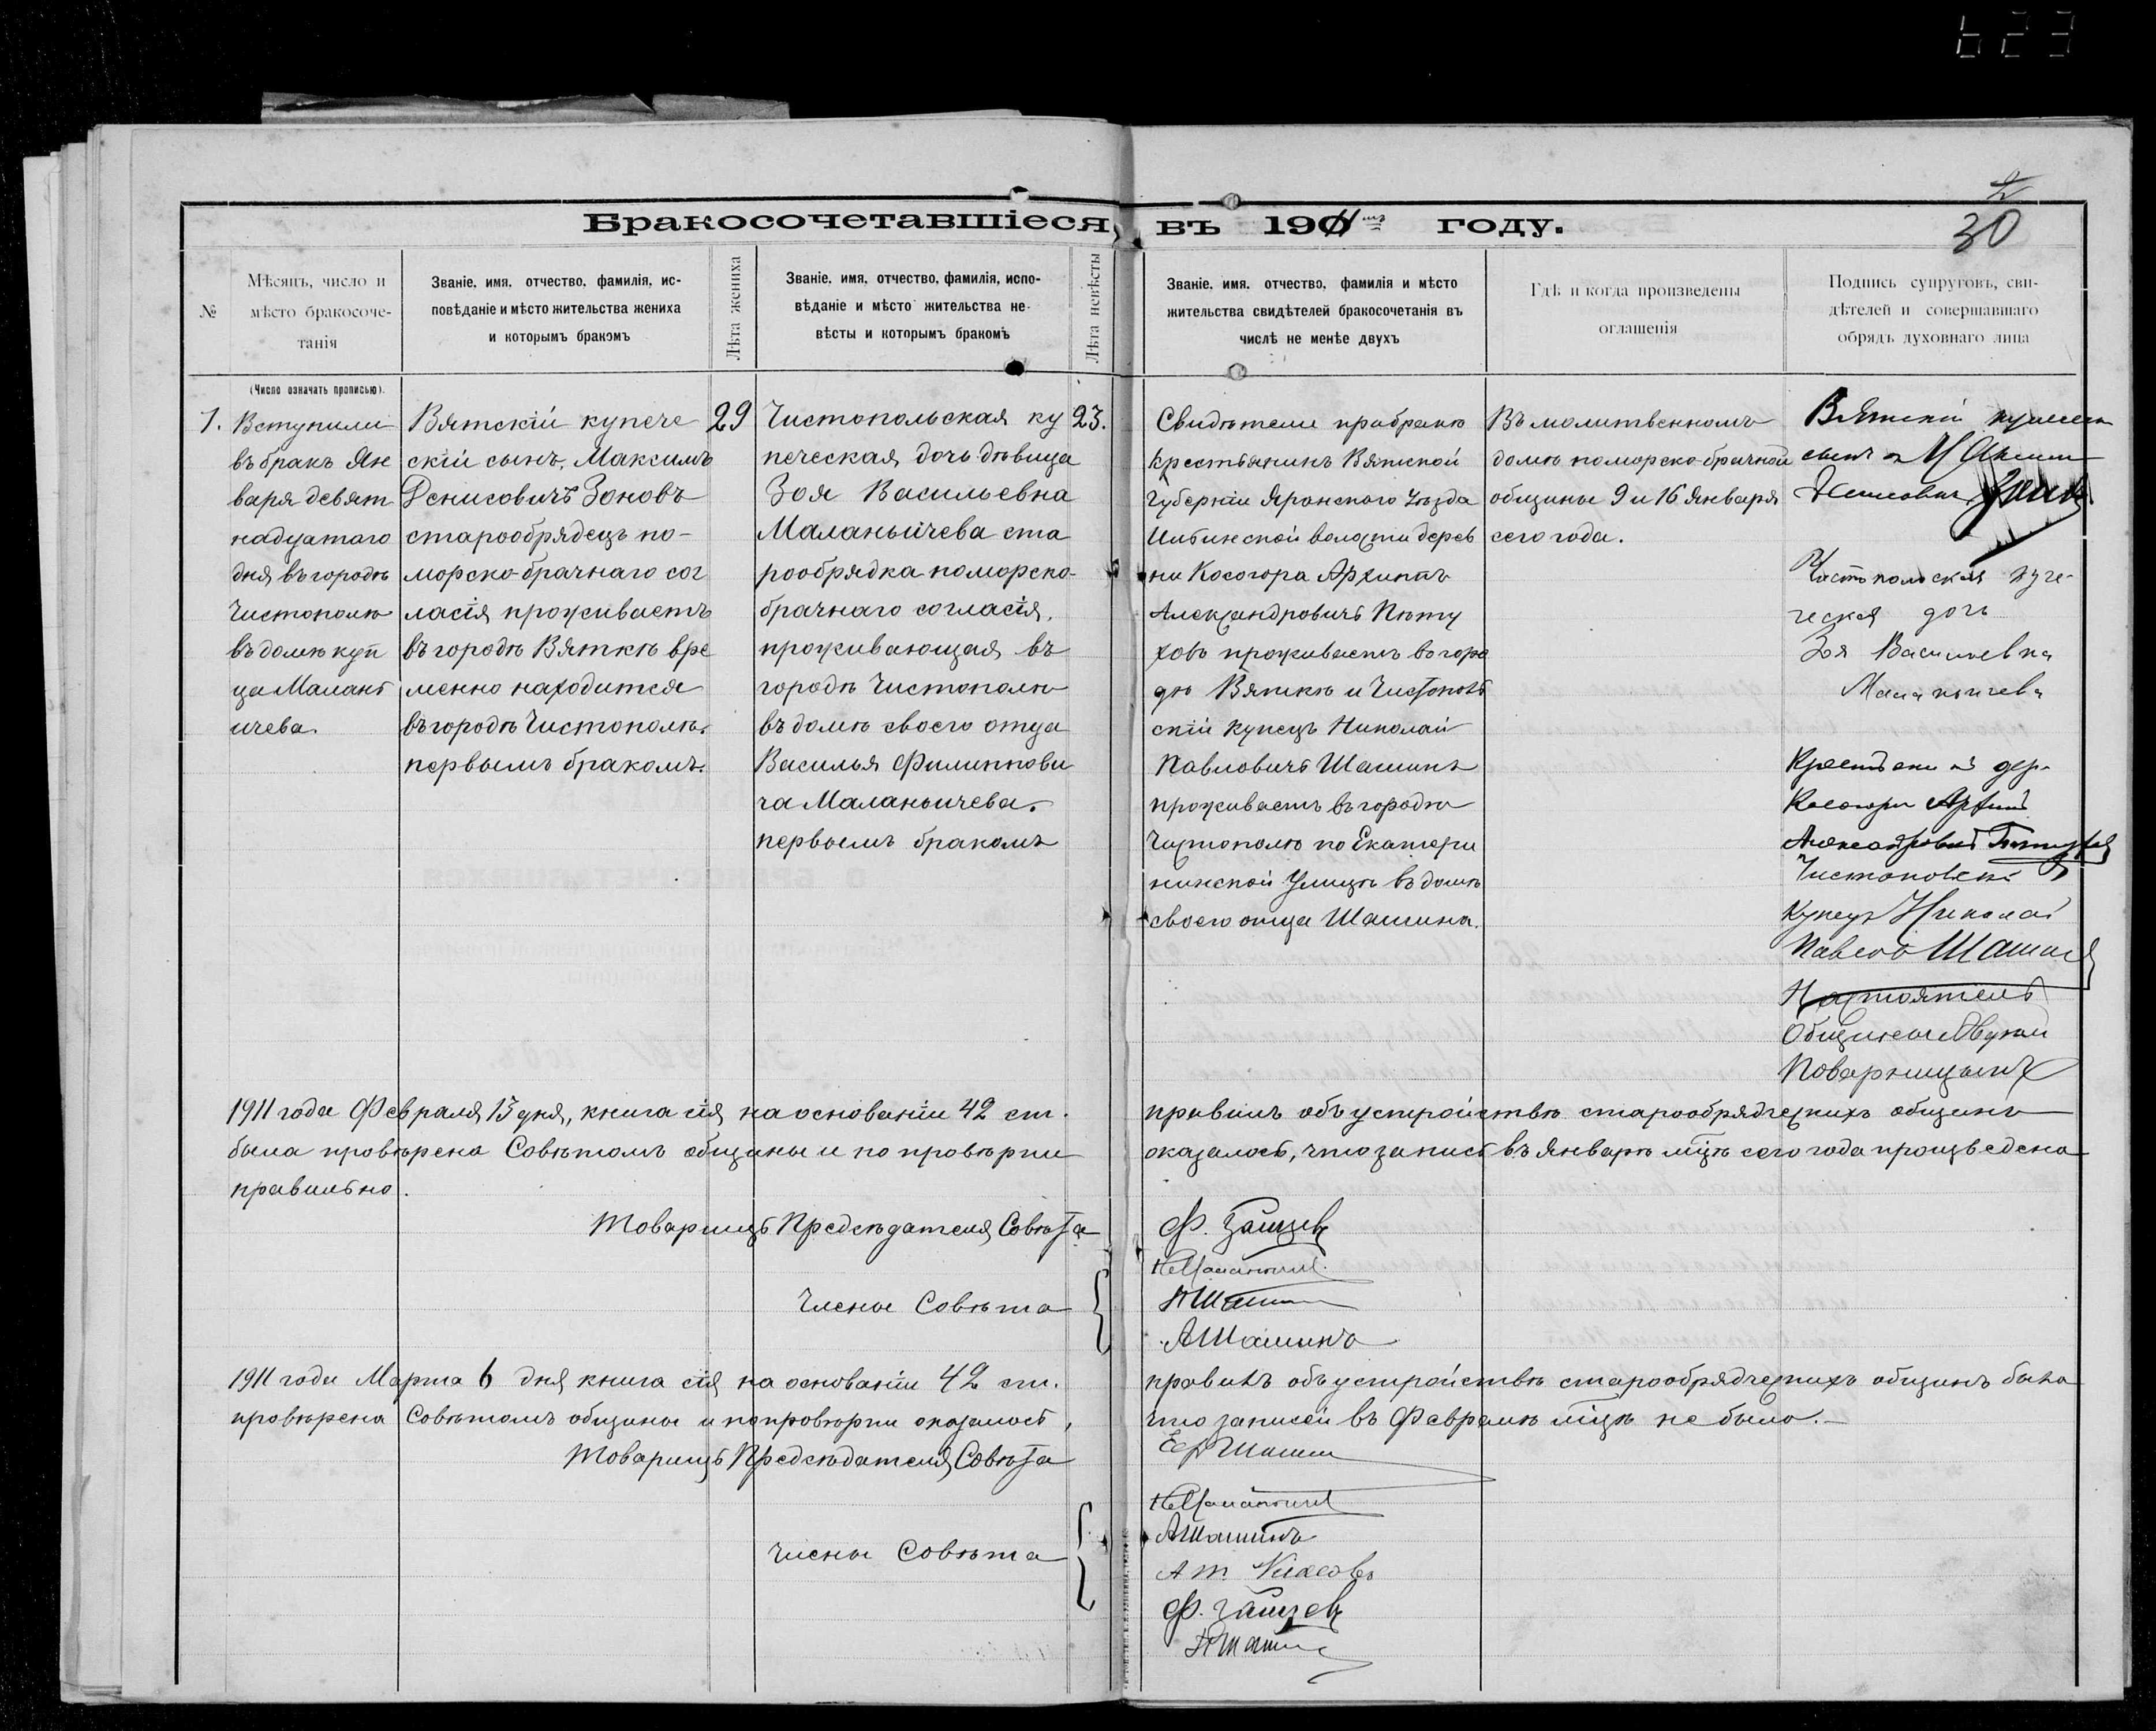 623
2
30
Бракосочетавшіеся въ 1911 году.
№
Мѣсяцъ, число и
мѣсто бракосоче-
танія
(Число означать прописью).
Званіе, имя, отчество, фамилія, ис-
повѣданіе и мѣсто жительства жениха
и которымъ бракомъ
Лѣта жениха
Званіе, имя, отчество, фамилія, испо-
вѣданіе и мѣсто жительства не-
вѣсты и которымъ бракомъ
Лѣта невѣсты
Званіе, имя, отчество, фамилія и мѣсто
жительства свидѣтелей бракосочетанія въ
числѣ не менѣе двухъ
Гдѣ и когда произведены
оглашенія
Подпись супруговъ, сви-
дѣтелей и совершавшаго
обрядъ духовнаго лица
1.
Вступили
въ бракъ Ян
варя девят
надцатаго
дня въ городѣ
Чистополѣ
въ домѣ куп
ца Малань
ичева.
Вятскій купече
скій сынъ, Максимъ
Денисовичъ Зоновъ
старообрядецъ по-
морско-брачнаго сог
ласія проживаетъ
въ городѣ Вяткѣ вре
менно находится
въ городѣ Чистополѣ.
первымъ бракомъ.
29
Чистопольская ку
печеская дочь дѣвица
Зоя Васильевна
Маланьичева ста
рообрядка поморско-
брачнаго согласія,
проживающая въ
городѣ Чистополѣ
въ домѣ своего отца
Василья Филиппови
ча Маланьичева.
первымъ бракомъ
23.
Свидѣтели при бракѣ
крестьянинъ Вятской
Губерніи Яранскаго Уѣзда
волости дерев
ни Косогора Архипъ
Александровичъ Пѣту
ховъ проживаетъ въ горо
дѣ Вяткѣ и Чистополь
скій купецъ Николай
Павловичъ Шашинъ
проживаетъ въ городѣ
Чистополѣ по Екатери
нинской Улицѣ въ домѣ
своего отца Шашина.
Въ молитвенномъ
домѣ поморско-брачной
общины 9 и 16 Января
сего года.
Вятскій
сынъ Максимъ
Денисовичъ Зоновъ
Чистопольская купе-
ческая дочь
Зоя Васильевна
Маланьичева
дер.
Косогора Архипъ
Александровичъ Пѣтуховъ
Купецъ Николай
Шашинъ
Настоятель
Общины
Поварницынъ
1911 года Февраля 13 дня, книга сія на основаніи 42 ст. правилъ объ устройствѣ старообрядческихъ общинъ
была провѣрена Совѣтомъ общины и по провѣрки оказалось, что запись въ Январѣ мцѣ сего года произведена
правильно.
Товарищъ Предсѣдателя Совѣта Ф. Зайцевъ
Члены Совѣта
НШашинъ
АШашинъ
1911 года Марта 6 дня книга сія на основаніи 42 ст. правилъ объ устройствѣ старообрядческихъ общинъ была
провѣрена Совѣтомъ общины и по провѣрки оказалось, что записей въ Февралѣ мцѣ не было.
Товарищъ Предсѣдателя Совѣта Шашин
Члены Совѣта
АШашинъ
Ф. Зайцевъ
НШашин